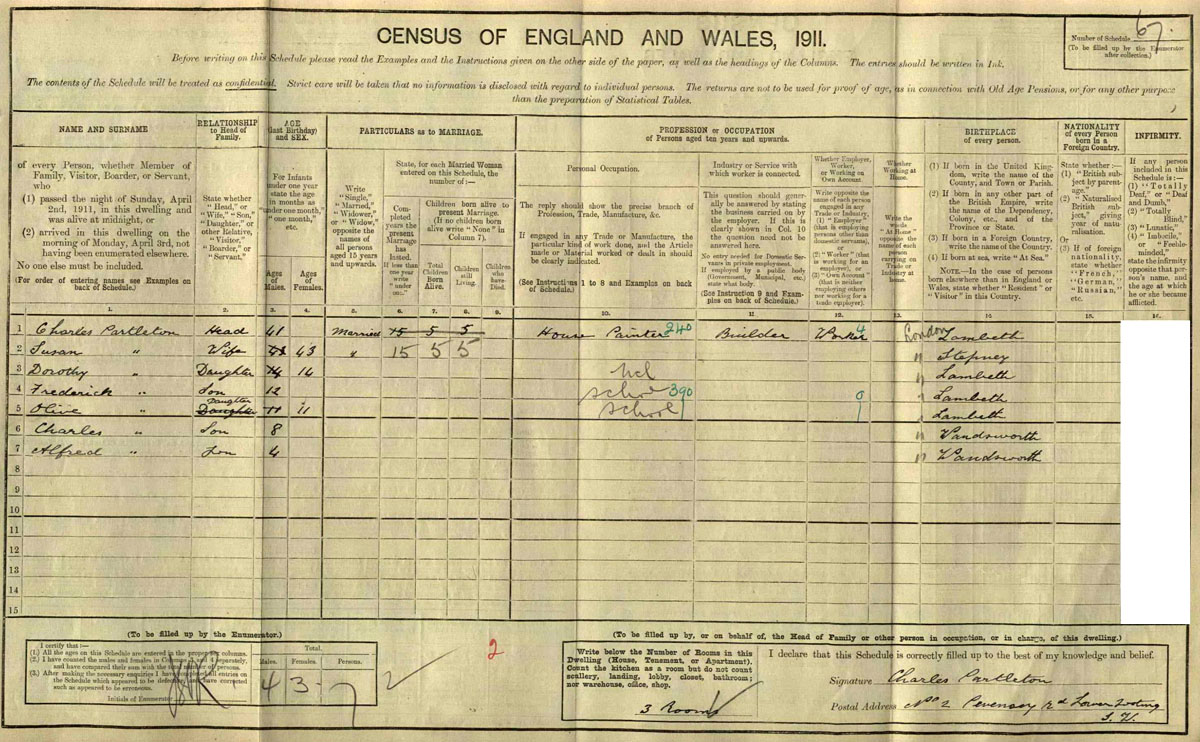 CENSUS OF ENGLAND AND WALES, 1911.
Number of Schedule 67.
(To be filled up by the Enumerator
after collection.)
Before writing on this Schedule please read the Examples and the Instructions given on the other side of the paper, as well as the headings of the Columns. The entries should be written in Ink.
The contents of the Schedule will be treated as confidential. Strict care will be taken that no information is disclosed with regard to individual persons. The returns are not to be used for proof of age, as in connection with Old Age Pensions, or for any other purpose
than the preparation of Statistical Tables.
NAME AND SURNAME
of every Person, whether Member of
Family, Visitor, Boarder, or Servant,
who
(1) passed the night of Sunday, April
2nd, 1911, in this dwelling and
was alive at midnight, or
(2) arrived in this dwelling on the
morning of Monday, April 3rd, not
having been enumerated elsewhere.
No one else must be included.
(For order of entering names see Examples on
back of Schedule.)
1.
RELATIONSHIP
to Head of
Family.
State whether
"Head," or
"Wife," "Son,"
"Daughter," or
other Relative,
"Visitor,"
"Boarder," or
"Servant."
2.
AGE
(last Birthday)
and SEX.
For Infants
under one year
state the age
in months as
"under one month,"
"one month,"
etc.
Ages
of
Males.
Ages
of
Females.
3.
4.
PARTICULARS as to MARRIAGE.
Write
"Single,"
"Married,"
"Widower,"
or "Widow,"
opposite the
names of
all persons
aged 15 years
and upwards.
5.
State, for each Married Woman
entered on this Schedule, the
number of:—
Completed
years the
present
Marriage
has
lasted.
If less than
one year
write
"under
one."
6.
Children born alive to
present Marriage.
(If no children born
alive write "None" in
Column 7).
Total
Children
Born
Alive.
7.
Children
still
Living.
8.
Children
who
have
Died.
9.
PROFESSION or OCCUPATION
of Persons aged ten years and upwards.
Personal Occupation.
The reply should show the precise branch of
Profession, Trade, Manufacture, &c.
If engaged in any Trade or Manufacture, the
particular kind of work done, and the Article
made or Material worked or dealt in should
be clearly indicated.
(See Instructions 1 to 8 and Examples on back
of Schedule.)
10.
Industry or Service with
which worker is connected.
This question should gener-
ally be answered by stating
the business carried on by
the employer. If this is
clearly shown in Col. 10
the question need not be
answered here.
No entry needed for Domestic Ser-
vants in private employment.
If employed by a public body
(Government, Municipal, etc.)
state what body.
(See Instruction 9 and Exam-
ples on back of Schedule.)
11.
Whether Employer,
Worker,
or Working on
Own Account.
Write opposite the
name of each person
engaged in any
Trade or Industry,
(1) "Employer"
(that is employing
persons other than
domestic servants),
or
(2) "Worker" (that
is working for an
employer), or
(3) "Own Account"
(that is neither
employing others
nor working for a
trade employer).
12.
Whether
Working at
Home.
Write the
words
"At Home"
opposite the
name of each
person
carrying on
Trade or
Industry at
home.
13.
BIRTHPLACE
of every person.
(1) If born in the United King-
dom, write the name of the
County, and Town or Parish.
(2) If born in any other part of
the British Empire, write
the name of the Dependency,
Colony, etc., and of the
Province or State.
(3) If born in a Foreign Country,
write the name of the Country.
(4) If born at sea, write "At Sea."
NOTE.—In the case of persons
born elsewhere than in England or
Wales, state whether "Resident" or
"Visitor" in this Country.
14.
NATIONALITY
of every Person
born in a
Foreign Country.
State whether:—
(1) "British
subject by
parentage."
(2) "Naturalised
British sub-
ject," giving
year of natu-
ralisation.
Or
(3) If of foreign
nationality,
state whether
"French,"
"German,"
"Russian,"
etc.
15.
INFIRMITY.
If any person
included in this
Schedule is:—
(1) "Totally
Deaf," or "Deaf
and Dumb,"
(2) "Totally
Blind,"
(3) "Lunatic,"
(4) "Imbecile,"
or "Feeble-
minded,"
state the infirmity
opposite that per-
son's name, and
the age at which
he or she became
afflicted.
16.
1 Charles Partleton Head 41 Married 15 5 5 House Painter 240 Builder Worker 4 London Lambeth
2 Susan " Wife 43 " 15 5 5 " Stepney
3 Dorothy " Daughter 14 14 " Lambeth
4 Frederick " Son 12 school 390 0 " Lambeth
5 Olive " Daughter Daughter 11 11 school " Lambeth
6 Charles " Son 8 " Wandsworth
7 Alfred " Son 4 " Wandsworth
8
9
10
11
12
13
14
15
(To be filled up by the Enumerator.)
I certify that:—
(1.) All the ages on this Schedule are entered in the proper columns.
(2.) I have counted the males and females in Columns 3 and 4 separately,
and have compared their sum with the total number of persons.
(3.) After making the necessary enquiries I have completed all entries on
the Schedule which appeared to be defective, and have corrected
such as appeared to be erroneous.
Initials of Enumerator
Total.
Males. Females. Persons.
4 3 7
2
(To be filled up by, or on behalf of, the Head of Family or other person in occupation, or in charge, of this dwelling.)
Write below the Number of Rooms in this
Dwelling (House, Tenement, or Apartment).
Count the kitchen as a room but do not count
scullery, landing, lobby, closet, bathroom;
nor warehouse, office, shop.
3 Rooms
I declare that this Schedule is correctly filled up to the best of my knowledge and belief.
Signature Charles Partleton
Postal Address No 2 Pevensey Rd Lower Tooting
S.W.